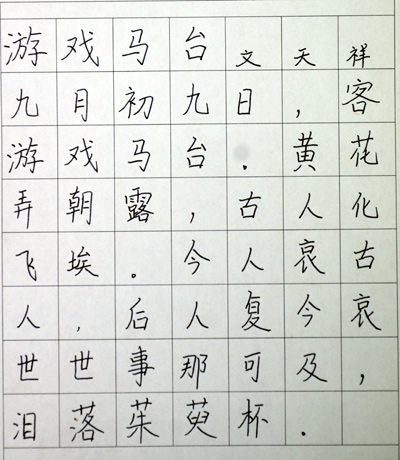 游戏马台 文天祥
九月初九日，客
游戏马台．黄花
弄朝露，古人化
飞埃。今人哀古
人，后人复今哀
世世事那可及，
泪落茱萸杯．